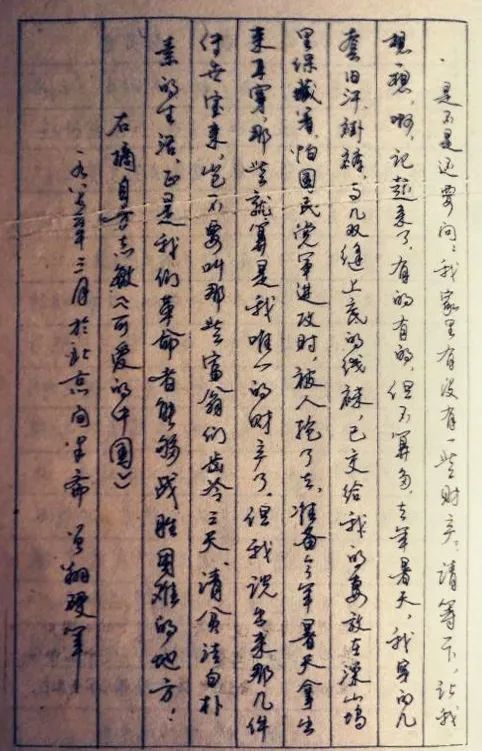 是不是还要问：我家里有没有一些财产。请等下，让我
想一想，啊，记起来了，有的有的，但不算多，去年暑天，我穿的几
套旧汗褂裤，与几双缝上底的线袜，已交给我的妻放在深山坞
里保藏着，怕国民党军进攻时，被人抢了去，准备今年暑天拿出
来再穿，那些就算是我唯一的财产了，但我说出来那几件
传世宝来，岂不要叫那些富翁们齿冷三天，清贫洁白朴
素的生活，正是我们革命者能够战胜困难的地方，
右摘自方志敏《可爱的中国》
年三月於北京 斋 翔硬笔